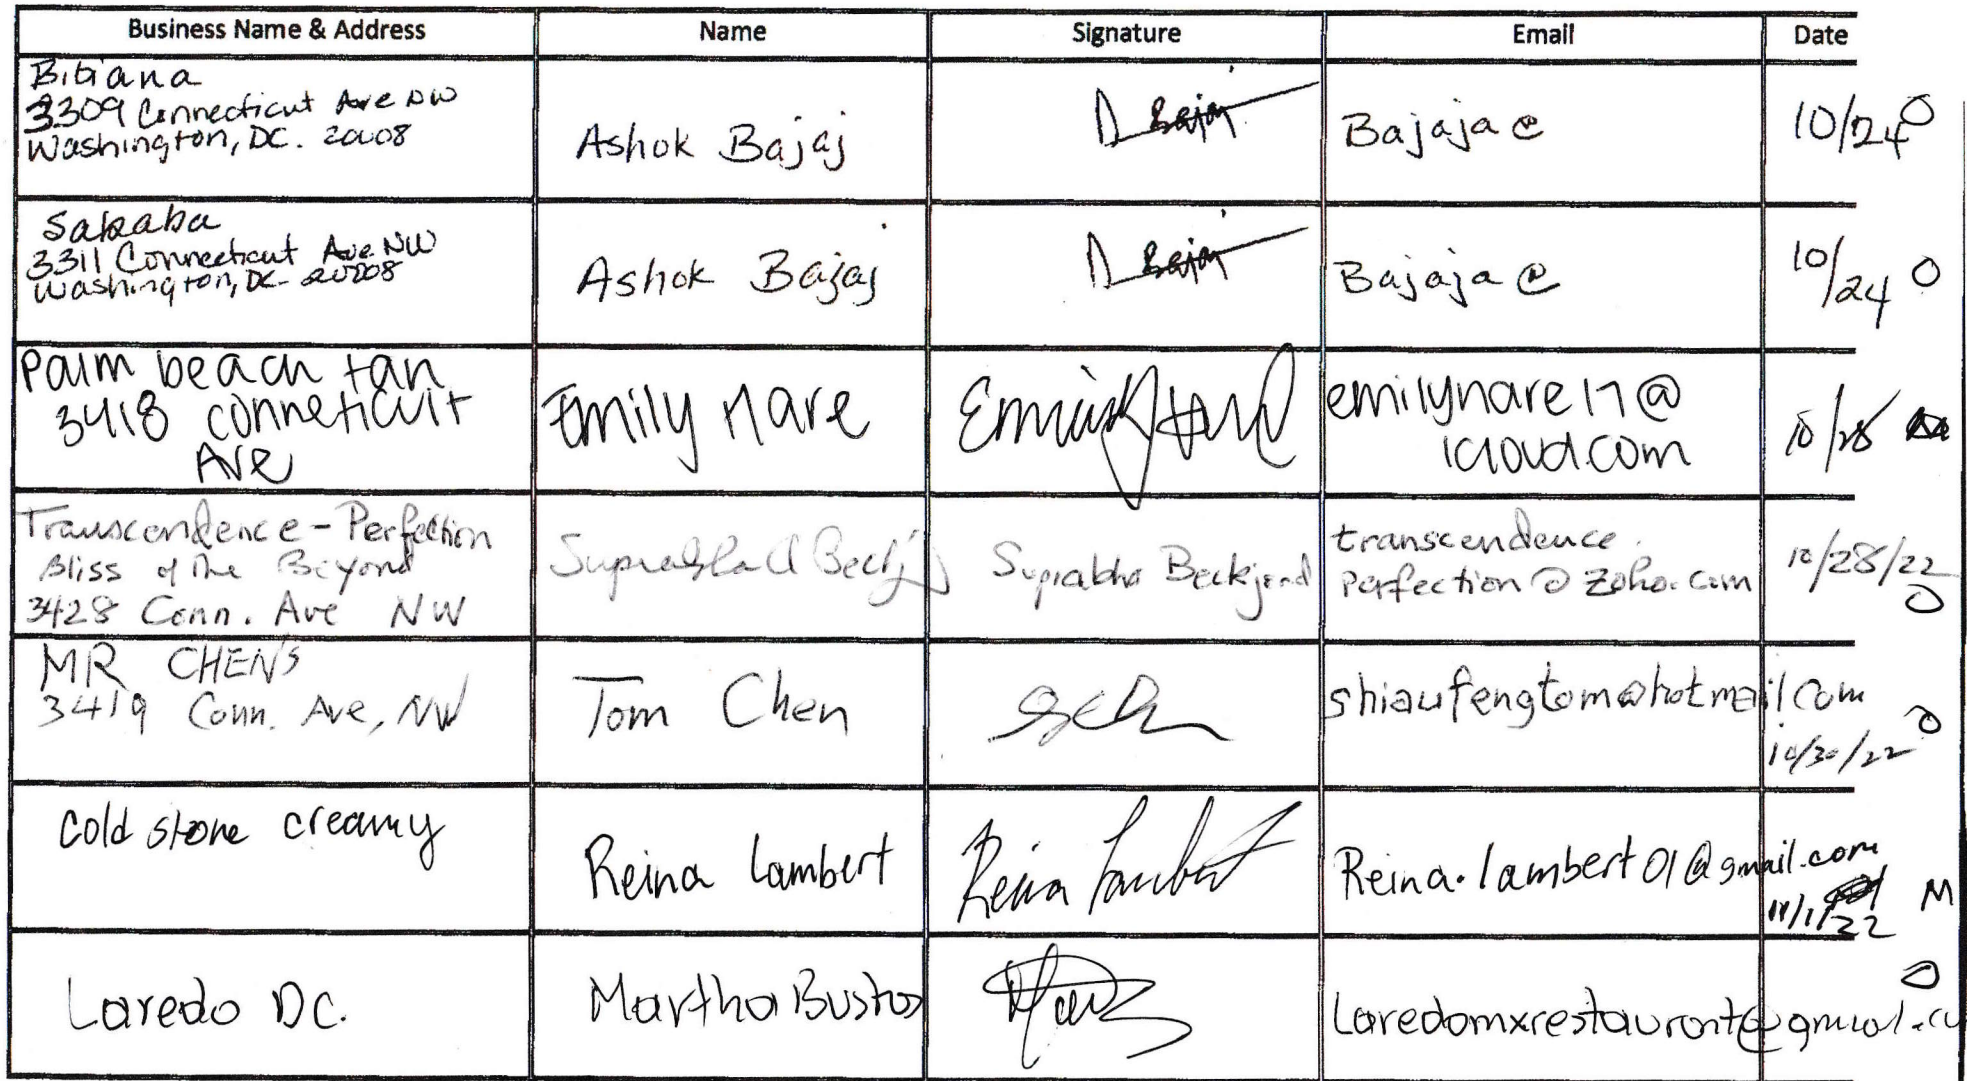 Business Name & Address Name Signature Email Date
Bibiana
3309 Connecticut Ave NW
Washington, DC. 20008
Ashok Bajaj
Bajaj
Bajaja@
10/24 O
Sababa
3311 Connecticut Ave NW
Washington, DC 20008
Ashok Bajaj
Bajaj
Bajaja@
10/24 O
Palm beach tan
3418 conneticuit
Ave
Emily Hare
Emily Hare
emilyhare17@
icloud.com
10/28
Transcendence-Perfection
Bliss of the Beyond
3428 Conn. Ave NW
Suprabha Beckj
Suprabha Beckjord
transcendence.
perfection@zoho.com
10/28/22
O
MR CHEN'S
3419 Conn. Ave, NW
Tom Chen
shiaufengtom@hotmail.com
10/30/22 O
Cold stone creamy
Reina Lambert
Reina Lambert
Reina.lambert01@gmail.com
11/1/22 M
Laredo DC.
Martha Bustos
O
Laredomxrestaurant@gmail.co